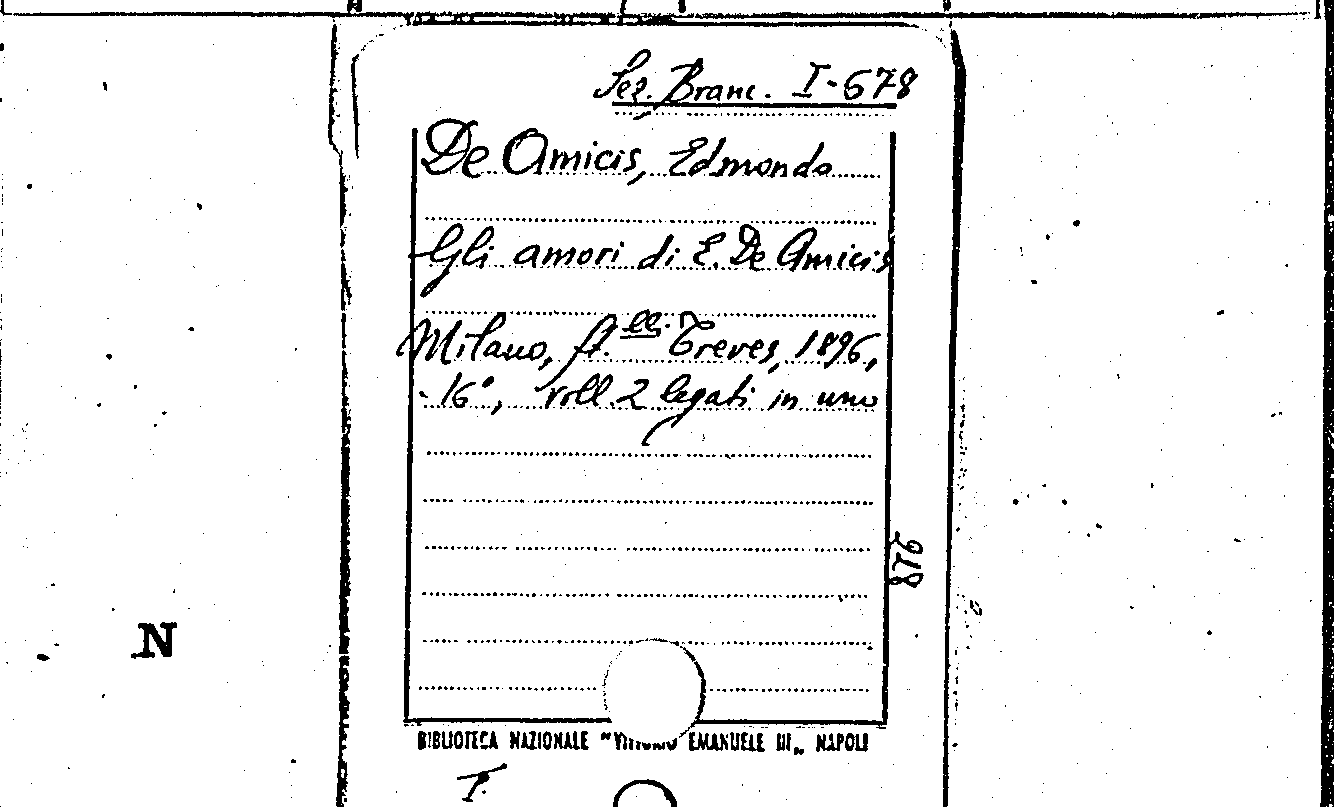 Sez. Branc. I-678
De Amicis, Edmondo
Gli amori di E. De Amicis
Milano, fr.lli Treves, 1896,
-16°, voll. 2 legati in uno
N
BIBLIOTECA NAZIONALE "VITTORIO EMANUELE III„ NAPOLI